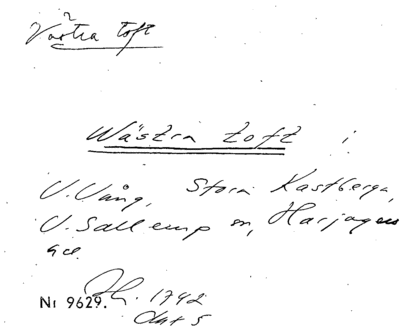 Västra toft
Wästra toft i
V. Vång, Stora Kastberga,
V. Sallerup m, Harjagers
Nr 9629. 1792
Akt 5